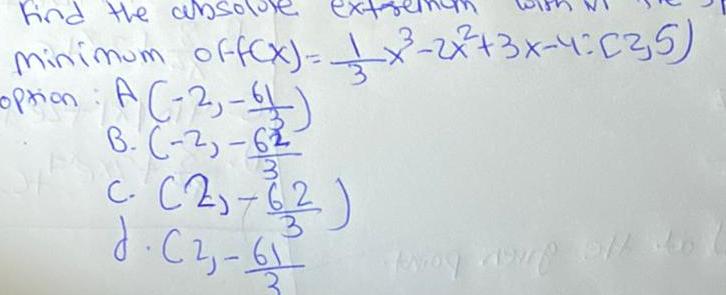 Find the absolute extremum within the
minimum of f(x) = 1/3 x³ - 2x² + 3x - 4 : [2, 5)
option : A (-2, -61/3)
B. (-2, -62/3
C. (2, -62/3)
d. (2, -61/3